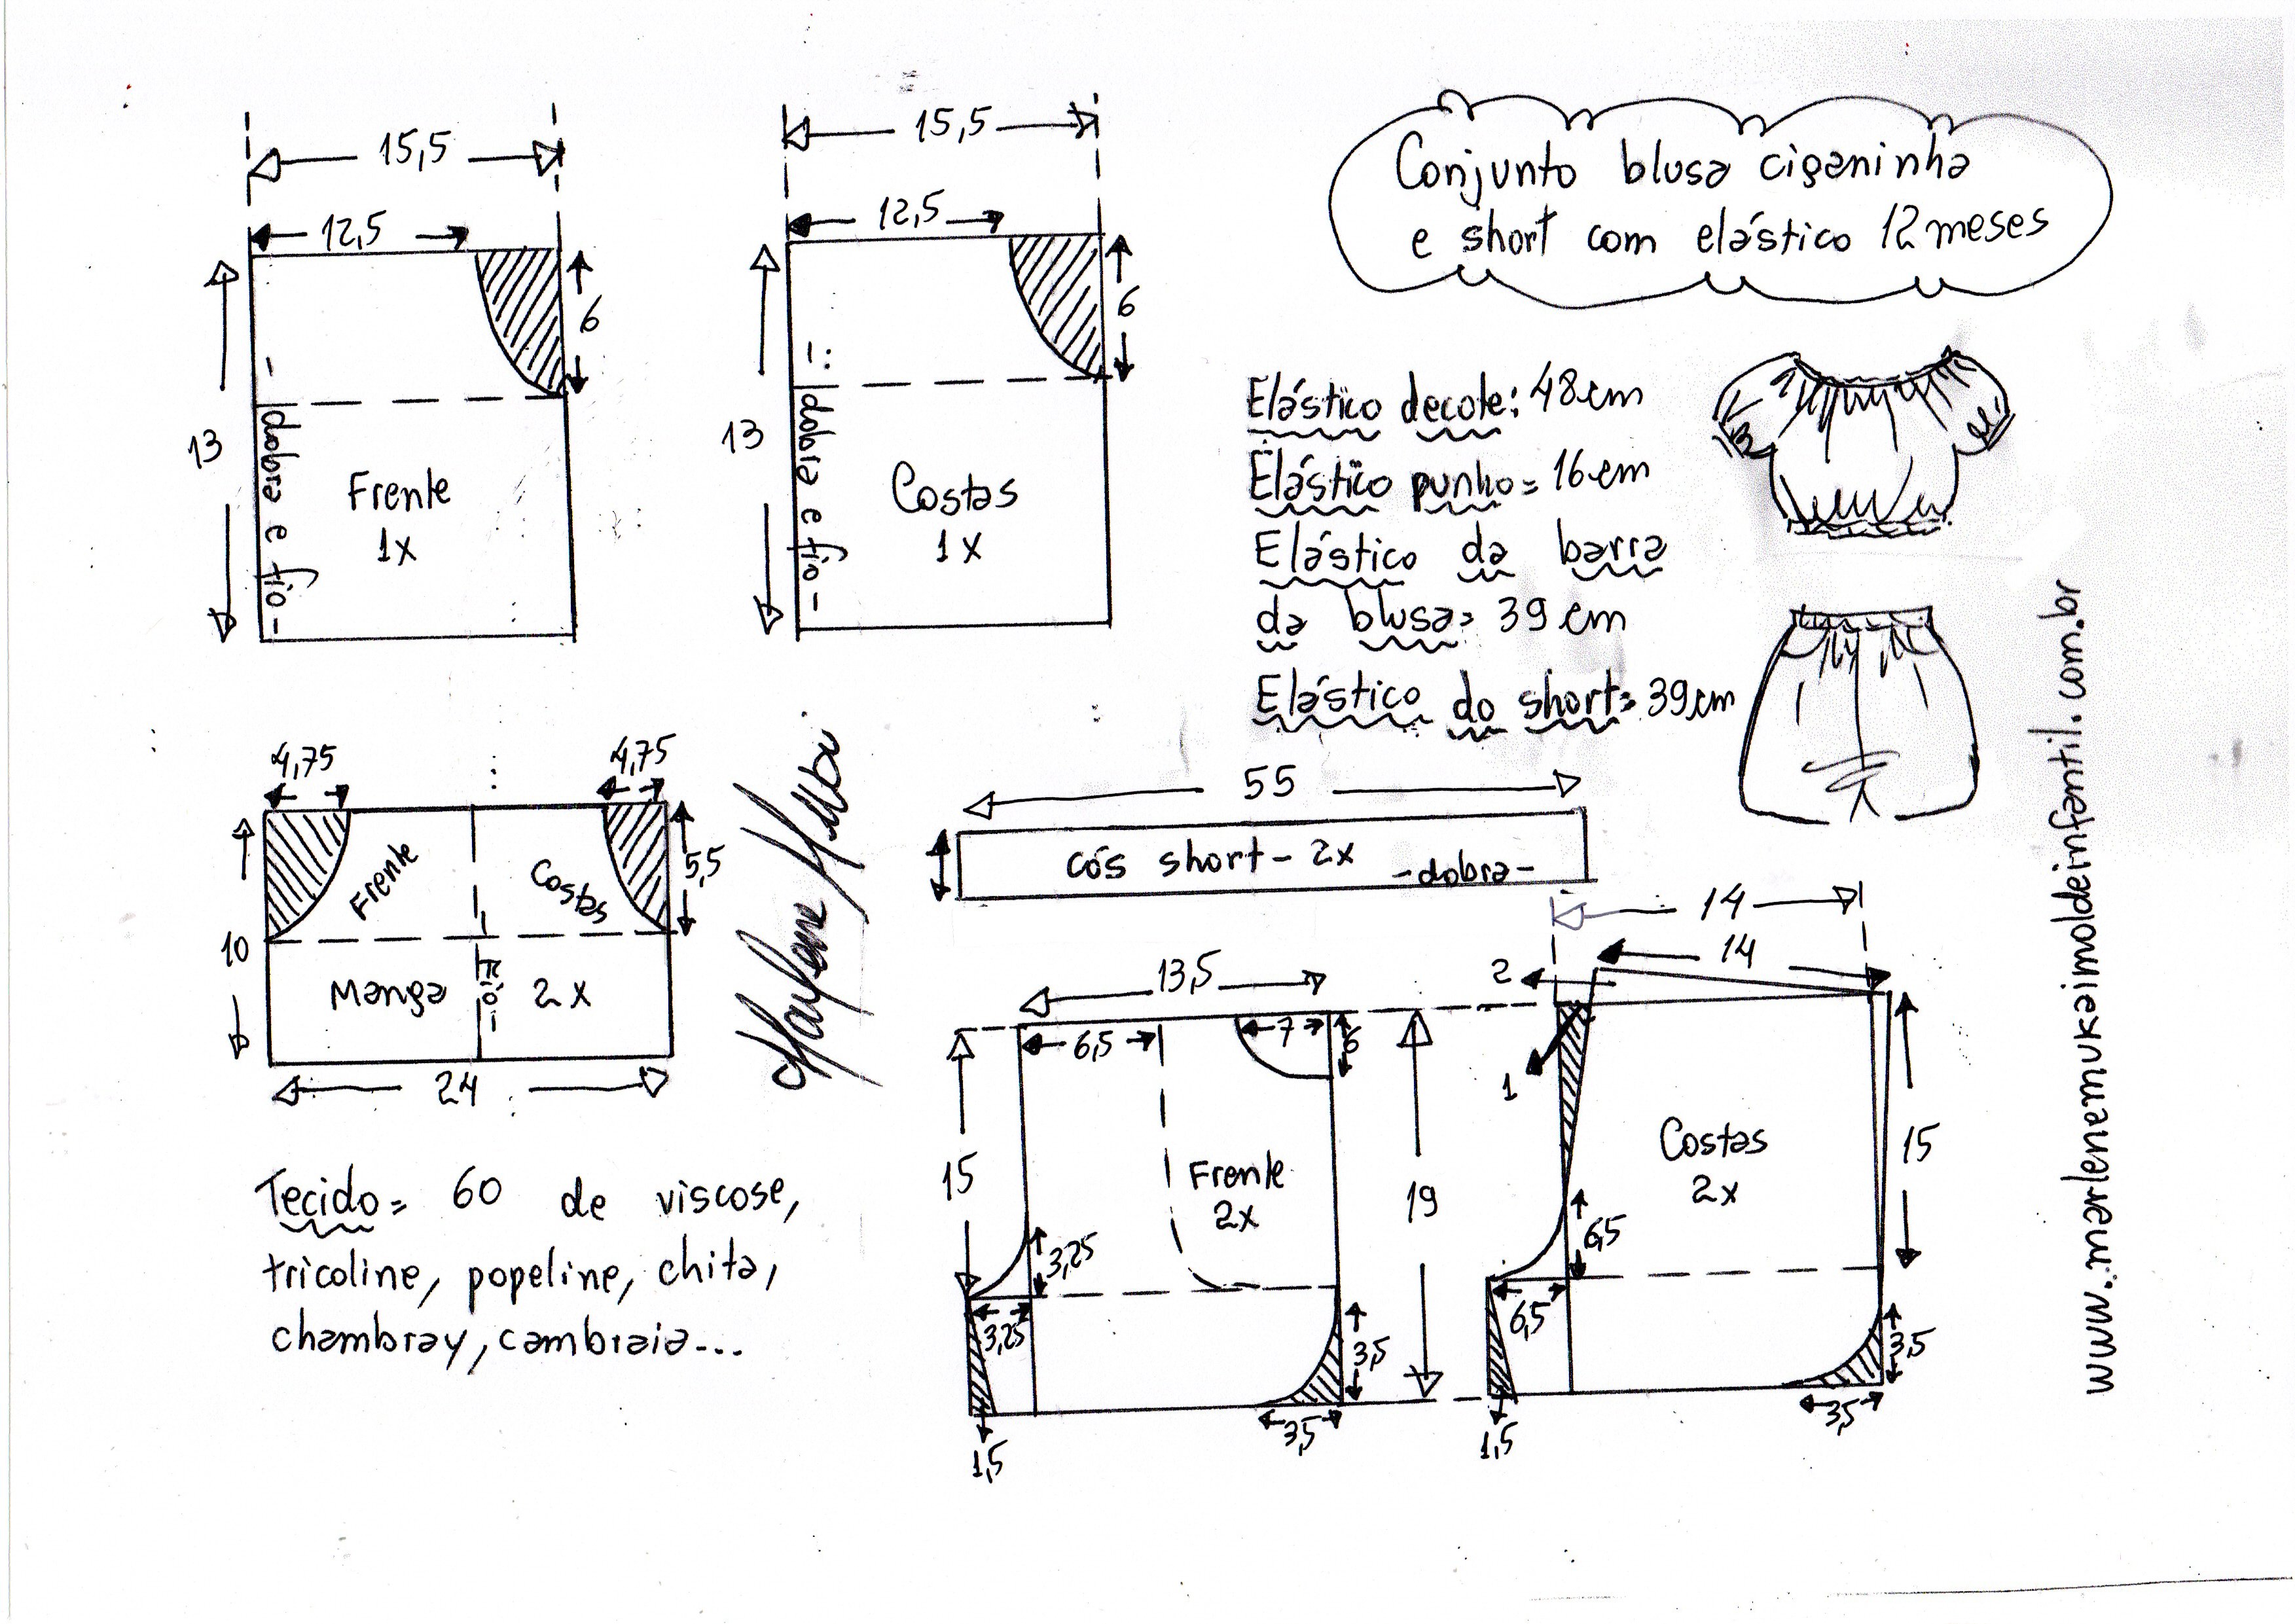 Conjunto blusa ciganinha
e short com elástico 12 meses
15,5
12,5
6
13
dobra e fio
Frente
1x
15,5
12,5
6
13
dobra e fio
Costas
1x
Elástico decote: 48cm
Elástico punho= 16cm
Elástico da barra
da blusa= 39cm
Elástico do short= 39cm
4,75
4,75
5,5
10
Frente
Costas
Manga
fio
2x
24
55
cós short - 2x
-dobra-
13,5
6,5
7
6
15
Frente
2x
3,25
3,25
3,5
3,5
1,5
19
14
14
2
1
Costas
2x
15
6,5
6,5
3,5
3,5
1,5
Tecido= 60 de viscose,
tricoline, popeline, chita,
chambray, cambraia...
www.marlenemukaimoldeinfantil.com.br